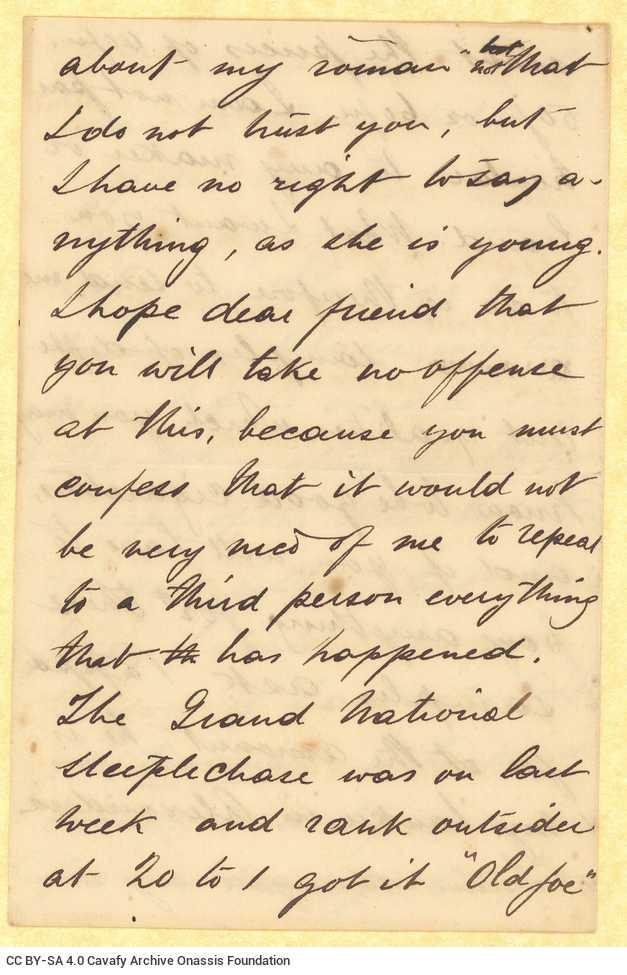 about my roman" not that
I do not trust you, but
I have no right to say a-
nything, as she is young.
I hope dear friend that
you will take no offense
at this, because you must
confess that it would not
be very nice of me to repeat
to a third person everything
that th has happened.
The Grand National
steeplechase was on last
week and rank outsider
at 20 to 1 got it "Old Joe"
CC BY-SA 4.0 Cavafy Archive Onassis Foundation